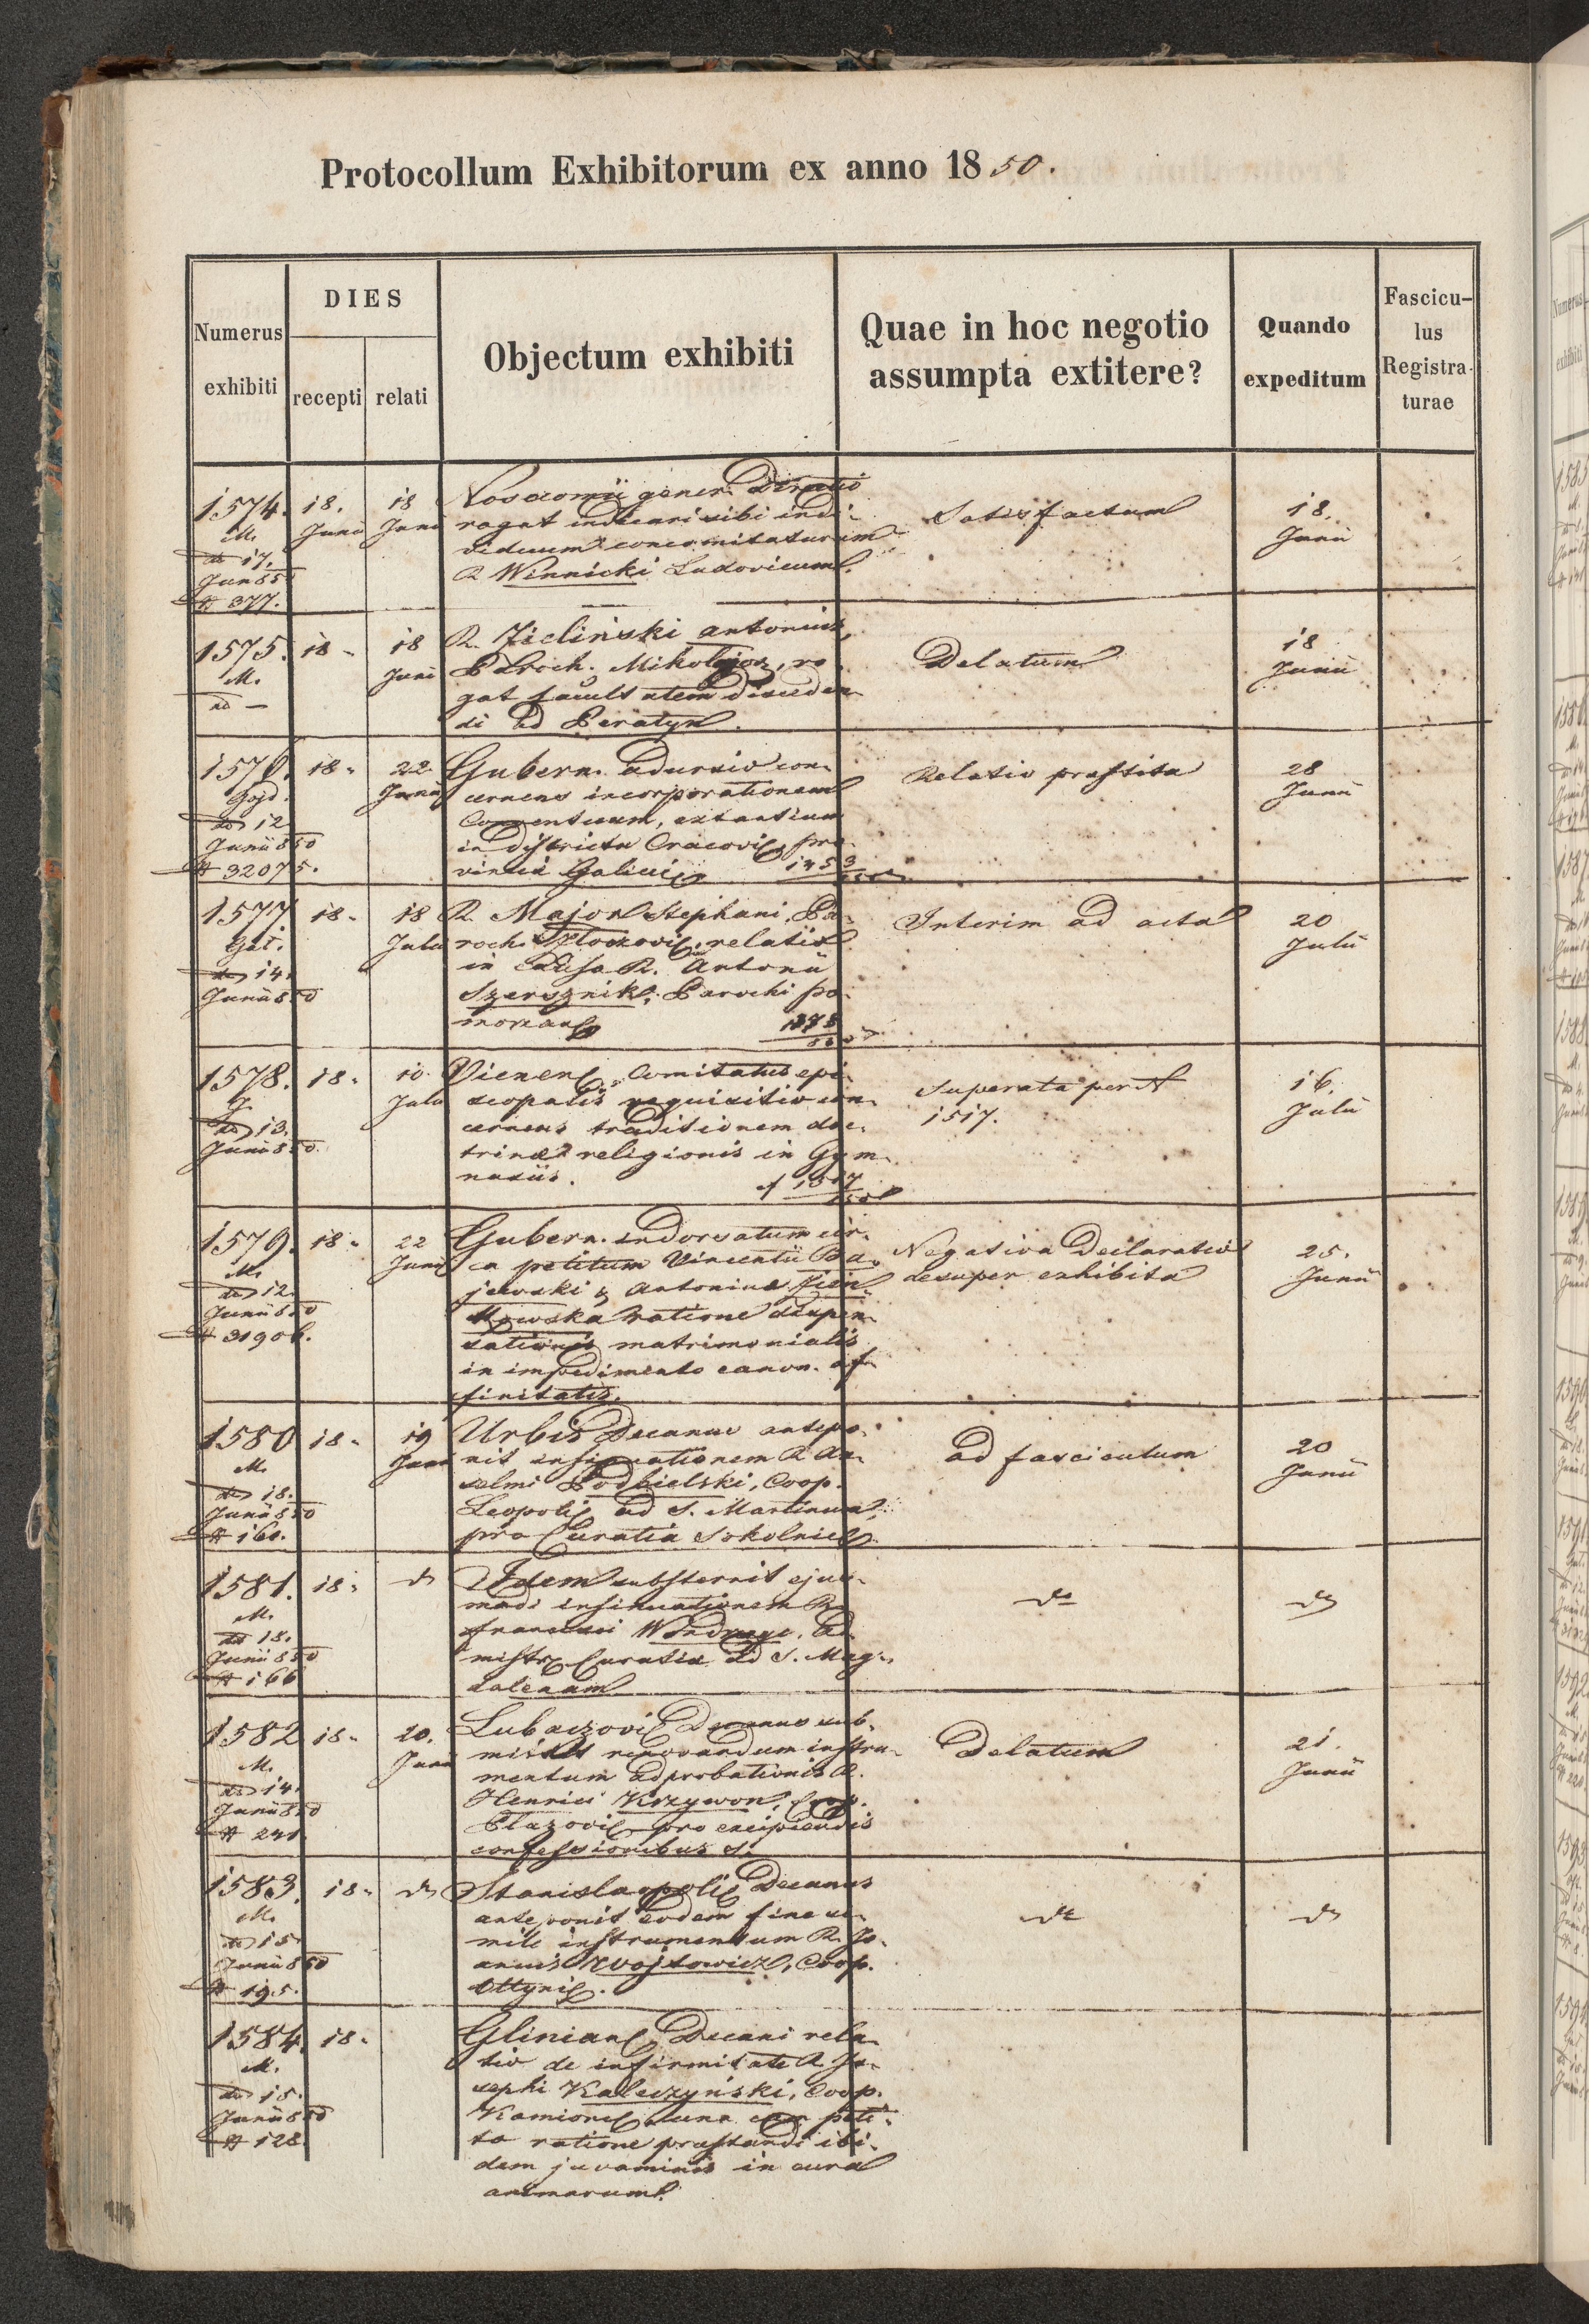 Protocollum Exhibitorum ex anno 1850.
Numerus exhibiti
DIES
recepti
relati
Objectum exhibiti
Quae in hoc negotio assumpta extitere?
Quando expeditum
Fascicu-
lus
Registra-
turae
1574. 18. Junii 18 Junii
M.
17.
Junii 85
# 377.
Nosocomii gener. Directio
rogat indicari sibi indi-
viduum concomitaturum
R. Winnicki Ludovicum.
Satisfactum
18.
Junii
1575. 18 - 18 Junii
M.
R. Zieliński Antonius,
Paroch. Mikolajov, ro-
gat facultatem
di ad Beratyn.
Delatum
18
Junii
1576. 18 - 22 Junii
12
Junii 850
# 32075.
Gubern. con-
cernens incorporationem
Conventuum, extantium
in districtu Cracovi pro-
vincia Galici
1453
Relatio præstita
28
Junii
1577. 18 - 18 Julii
14.
Junii 850
R. Major Stephani, Pa-
roch. relatio
in causa R. Antonii
Szersznik, Parochi po-
morzan
Interim ad acta
20
Julii
1578. 18 - 10 Julii
13.
Junii 850
Vienen. Comitatus epi-
scopalis requisitio con-
cernens traditionem doc-
trinæ religionis in Gym-
nasiis.
Superata per N
1517.
16.
Julii
1579. 18 - 22 Junii
M.
12.
Junii 850
# 31906.
Gubern. indorsatum cir-
ca petitum Vincentii Ba-
jewski & Antoninæ
ratione dispen-
sationis matrimonialis
in impedimento canon. af-
finitatis.
Negativa Declaratio
desuper exhibita
25.
Junii
1580 18 - 19 Junii
M.
18.
Junii 850
# 160.
Urbis Decanus antepo-
nit insinuationem R. An-
selmi Podbielski, Coop.
Leopoli ad S. Martinum,
pro Curatia Sokolnic
ad fasciculum
20
Junii
1581. 18 - do
M.
18.
Junii 850
# 166
Idem substernit ejus-
modi insinuationem R.
Francisci Ad-
mistr. Curatia ad S. Mag-
dalenam
do
do
1582 18 - 20. Junii
M.
14.
Junii 850
# 241
Lubaczovi Decanus sub-
mittit renovandum instru-
mentum adprobationis R.
Henrici Krzywon, Coop.
Plazovi pro excipiendis
confessionibus S.
Delatum
21.
Junii
1583. 18 - do
M.
15
Junii 850
# 195.
Stanislaopoli Decanus
anteponit eodem fine si-
mile instrumentum R. Jo-
annis Wojtowicz, Coop.
Ottyni.
do
do
1584. 18 -
M.
15.
Junii 850
# 128
Glinian Decani rela-
tio de infirmitate R. Jo-
sephi Kaleczyński, Coop.
Kamionc una cum peti-
to ratione præstandi ibi-
dem juvaminis in cura
animarum.